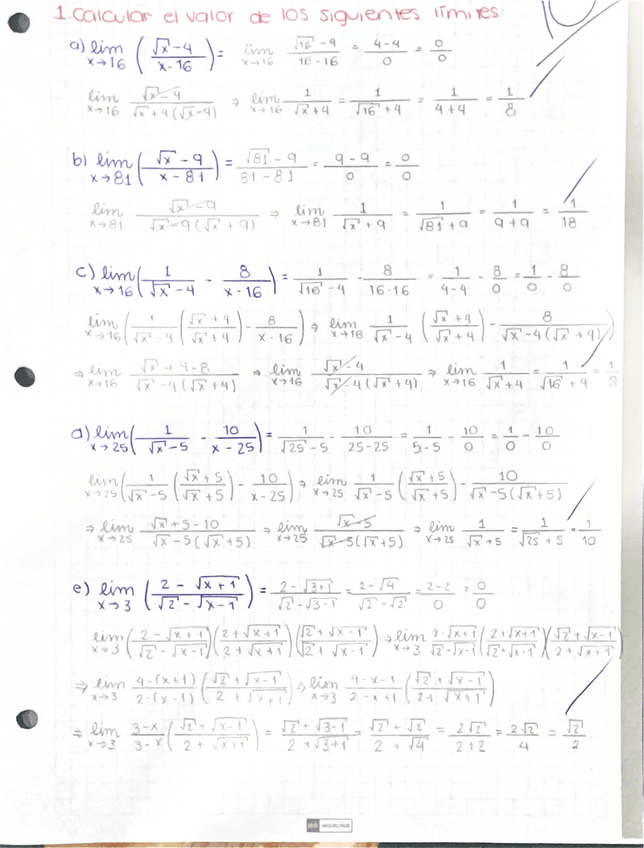 1. Calcular el valor de los siguientes límites:
a) lim x→16 (√x - 4 / x - 16) = lim x→16 √16 - 4 / 16 - 16 = 4 - 4 / 0 = 0/0
lim x→16 √x - 4 / √x + 4 (√x - 4) ⇒ lim x→16 1 / √x + 4 = 1 / √16 + 4 = 1 / 4 + 4 = 1/8
b) lim x→81 (√x - 9 / x - 81) = √81 - 9 / 81 - 81 = 9 - 9 / 0 = 0/0
lim x→81 √x - 9 / √x - 9 (√x + 9) ⇒ lim x→81 1 / √x + 9 = 1 / √81 + 9 = 1 / 9 + 9 = 1/18
c) lim x→16 (1 / √x - 4 - 8 / x - 16) = 1 / √16 - 4 - 8 / 16 - 16 = 1 / 4 - 4 - 8/0 = 1/0 - 8/0
lim x→16 (1 / √x - 4 (√x + 4 / √x + 4) - 8 / x - 16) ⇒ lim x→16 1 / √x - 4 (√x + 4 / √x + 4) - 8 / √x - 4 (√x + 4)
⇒ lim x→16 √x + 4 - 8 / √x - 4 (√x + 4) ⇒ lim x→16 √x - 4 / √x - 4 (√x + 4) ⇒ lim x→16 1 / √x + 4 = 1 / √16 + 4 = 1/8
d) lim x→25 (1 / √x - 5 - 10 / x - 25) = 1 / √25 - 5 - 10 / 25 - 25 = 1 / 5 - 5 - 10/0 = 1/0 - 10/0
lim x→25 (1 / √x - 5 (√x + 5 / √x + 5) - 10 / x - 25) ⇒ lim x→25 1 / √x - 5 (√x + 5 / √x + 5) - 10 / √x - 5 (√x + 5)
⇒ lim x→25 √x + 5 - 10 / √x - 5 (√x + 5) ⇒ lim x→25 √x - 5 / √x - 5 (√x + 5) ⇒ lim x→25 1 / √x + 5 = 1 / √25 + 5 = 1/10
e) lim x→3 (2 - √x + 1 / √2 - √x - 1) = 2 - √3+1 / √2 - √3-1 = 2 - √4 / √2 - √2 = 2 - 2 / 0 = 0/0
lim x→3 (2 - √x + 1 / √2 - √x - 1) (2 + √x + 1 / 2 + √x + 1) (√2 + √x - 1 / √2 + √x - 1) ⇒ lim x→3 2 - √x+1 / √2 - √x-1 (2 + √x+1 / √2 + √x-1) (√2 + √x-1 / 2 + √x+1)
⇒ lim x→3 4 - (x+1) / 2 - (x-1) (√2 + √x-1 / 2 + √x+1) ⇒ lim x→3 4 - x - 1 / 2 - x + 1 (√2 + √x-1 / 2 + √x+1)
⇒ lim x→3 3 - x / 3 - x (√2 + √x-1 / 2 + √x+1) = √2 + √3-1 / 2 + √3+1 = √2 + √2 / 2 + √4 = 2√2 / 2+2 = 2√2 / 4 = √2/2